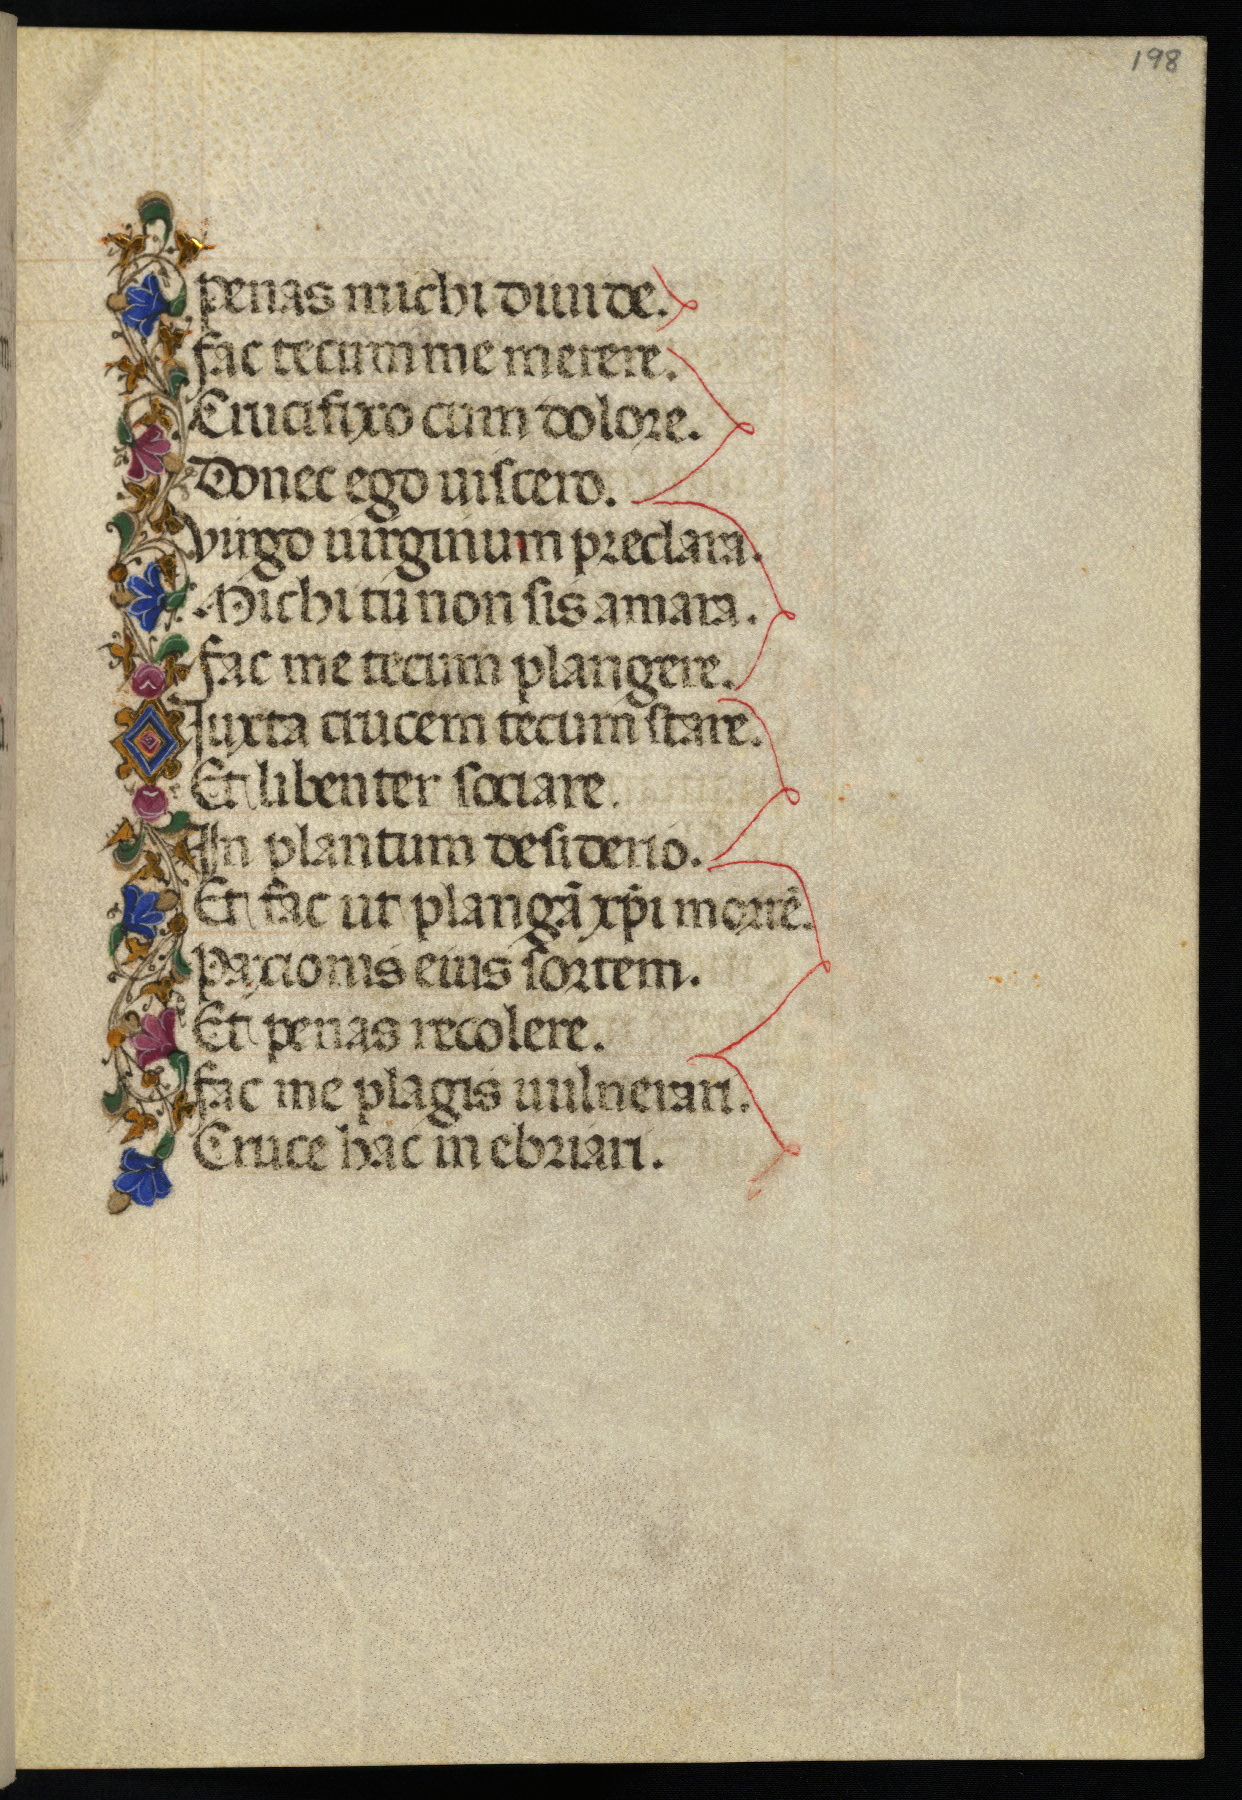 198
penas michi diuide.
fac tecum me merere.
Crucifixo cum dolore.
Donec ego uiscero.
Virgo uirginum preclara.
Michi tu non sis amara.
fac me tecum plangere.
Iuxta crucem tecum stare.
Et libenter sociare.
In plantum desiderio.
Et fac ut plangā xp̄i mortē.
Paxionis eius sortem.
Et penas recolere.
fac me plagis uulnerari.
Cruce hac in ebriari.